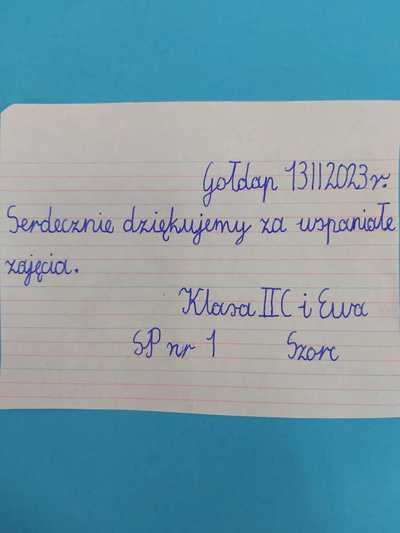 Gołdap 13II2023r.
Serdecznie dziękujemy za wspaniałe
zajęcia.
Klasa IIC i Ewa
SP nr 1 Szorc